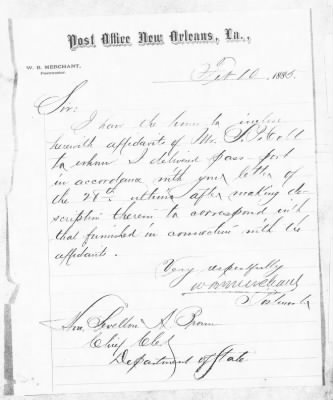 Post Office New Orleans, La.,
W. B. MERCHANT,
Postmaster.
Feb 10, 1883.
Sir:
I have the honor to inclose
herewith affidavits of Mr.
to whom I delivered pass port
in accordance with your letter of
the ultimo after making de-
scription therein to correspond with
that furnished in connection with the
affidavits.
Very respectfully
W B Merchant
Postmaster
Hon. Sevellon A. Brown
Chief Clerk
Department of State